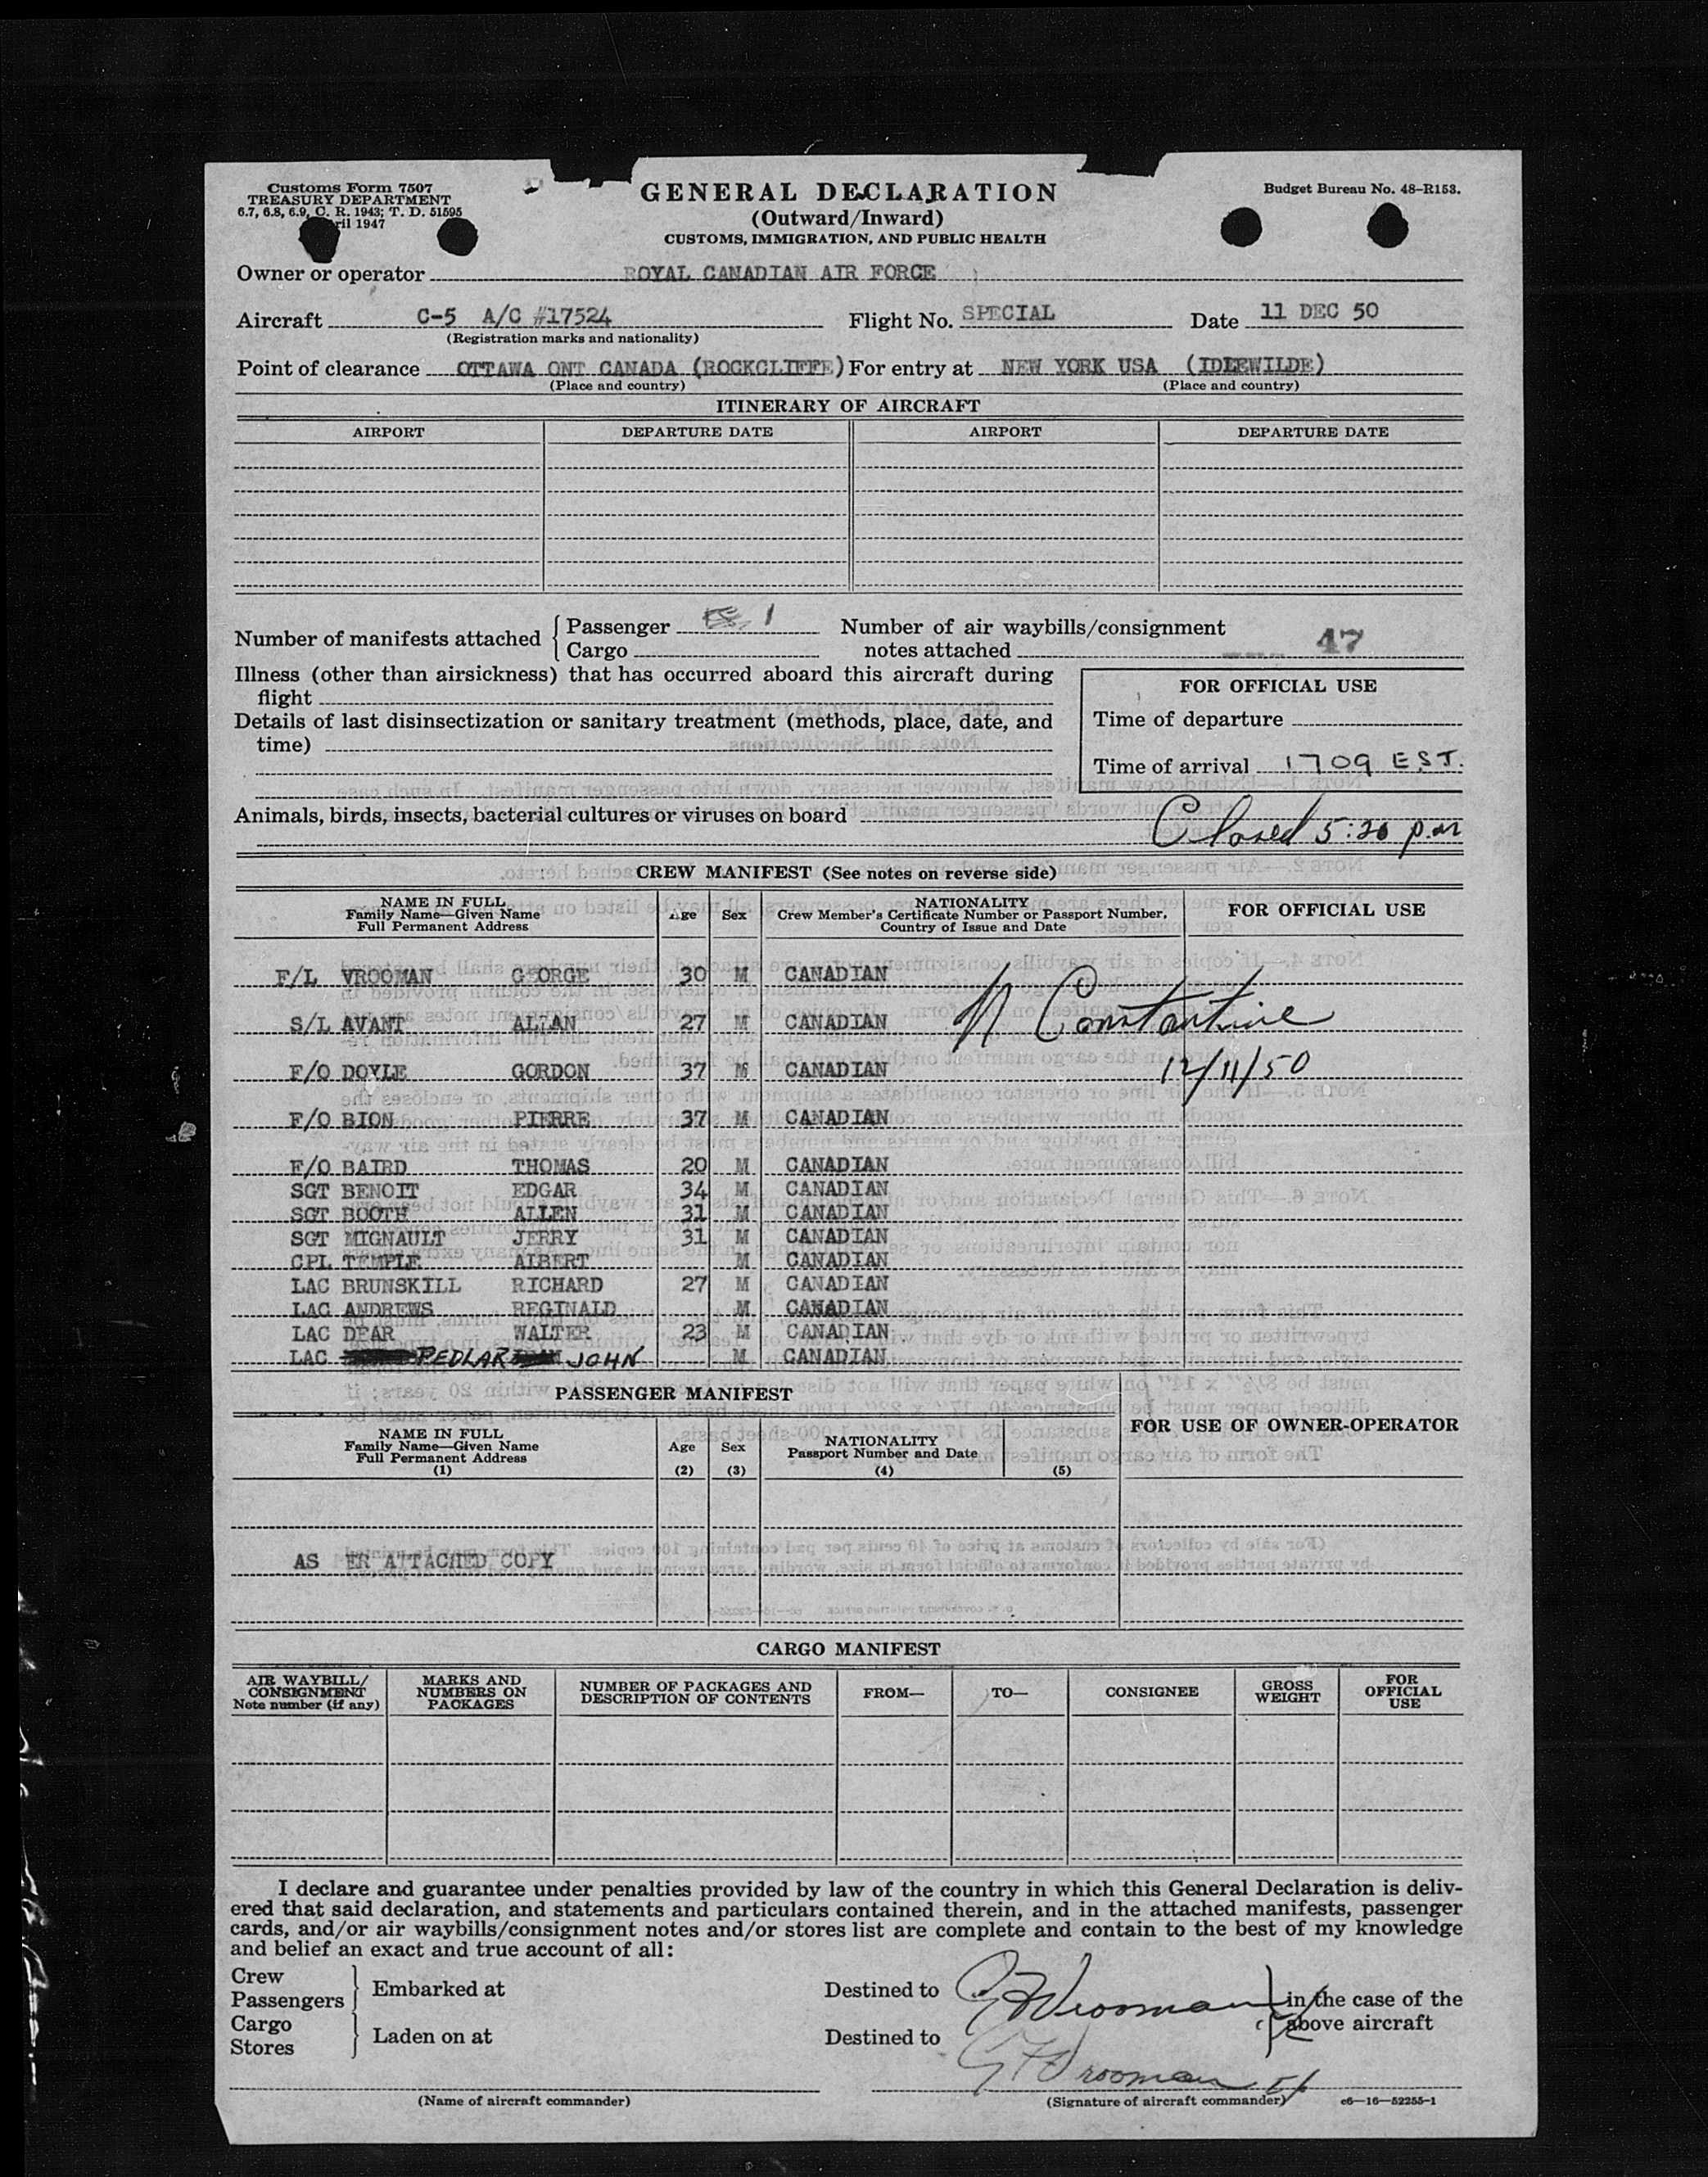 Customs Form 7507
TREASURY DEPARTMENT
6.7, 6.8, 6.9, C. R. 1943; T. D. 51595
ril 1947
GENERAL DECLARATION
(Outward/Inward)
CUSTOMS, IMMIGRATION, AND PUBLIC HEALTH
Budget Bureau No. 48-R153.
Owner or operator ROYAL CANADIAN AIR FORCE
Aircraft C-5 A/C #17524 Flight No. SPECIAL Date 11 DEC 50
(Registration marks and nationality)
Point of clearance OTTAWA ONT CANADA (ROCKCLIFFE) For entry at NEW YORK USA (IDLEWILDE)
(Place and country) (Place and country)
ITINERARY OF AIRCRAFT
AIRPORT DEPARTURE DATE AIRPORT DEPARTURE DATE
Number of manifests attached { Passenger 1
Cargo
Number of air waybills/consignment
notes attached 47
Illness (other than airsickness) that has occurred aboard this aircraft during
flight
Details of last disinsectization or sanitary treatment (methods, place, date, and
time)
FOR OFFICIAL USE
Time of departure
Time of arrival 1709 EST.
Animals, birds, insects, bacterial cultures or viruses on board
Closed 5:20 p.m
CREW MANIFEST (See notes on reverse side)
NAME IN FULL
Family Name—Given Name
Full Permanent Address
Age Sex
NATIONALITY
Crew Member's Certificate Number or Passport Number,
Country of Issue and Date
FOR OFFICIAL USE
F/L VROOMAN GEORGE 30 M CANADIAN
S/L AVANT ALLAN 27 M CANADIAN
N Constantine
F/O DOYLE GORDON 37 M CANADIAN
12/11/50
F/O BION PIERRE 37 M CANADIAN
F/O BAIRD THOMAS 20 M CANADIAN
SGT BENOIT EDGAR 34 M CANADIAN
SGT BOOTH ALLEN 31 M CANADIAN
SGT MIGNAULT JERRY 31 M CANADIAN
CPL TEMPLE ALBERT M CANADIAN
LAC BRUNSKILL RICHARD 27 M CANADIAN
LAC ANDREWS REGINALD M CANADIAN
LAC DEAR WALTER 23 M CANADIAN
LAC PEDLAR JOHN M CANADIAN
PASSENGER MANIFEST
NAME IN FULL
Family Name—Given Name
Full Permanent Address
(1)
Age
(2)
Sex
(3)
NATIONALITY
Passport Number and Date
(4) (5)
FOR USE OF OWNER-OPERATOR
AS ER ATTACHED COPY
CARGO MANIFEST
AIR WAYBILL/
CONSIGNMENT
Note number (if any)
MARKS AND
NUMBERS ON
PACKAGES
NUMBER OF PACKAGES AND
DESCRIPTION OF CONTENTS
FROM—
TO—
CONSIGNEE
GROSS
WEIGHT
FOR
OFFICIAL
USE
I declare and guarantee under penalties provided by law of the country in which this General Declaration is deliv-
ered that said declaration, and statements and particulars contained therein, and in the attached manifests, passenger
cards, and/or air waybills/consignment notes and/or stores list are complete and contain to the best of my knowledge
and belief an exact and true account of all:
Crew
Passengers } Embarked at Destined to
Cargo
Stores } Laden on at Destined to
in the case of the
above aircraft
G F Vrooman
G F Vrooman F/L
(Name of aircraft commander) (Signature of aircraft commander) c6—16—52255-1